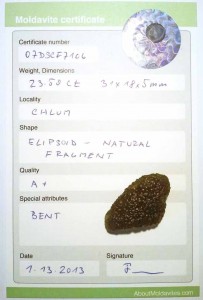 Moldavite certificate
Certificate number
Weight, Dimensions
23.50 ct 31x18x5mm
Locality
CHLUM
Shape
ELIPSOID - NATURAL
FRAGMENT
Quality
A+
Special attributes
BENT
Date
Signature
1.13.2013
AboutMoldavites.com